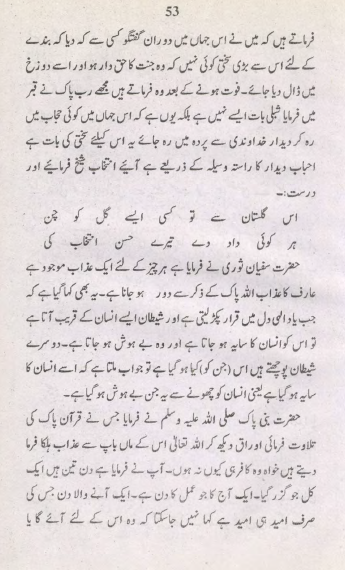 53
فرماتے ہیں کہ میں نے اس جہاں میں دوران گفتگو کسی سے کہ دیا کہ بندے
کے لئے اس سے بڑی سختی کوئی نہیں کہ وہ جنت کا حق دار ہو اور اسے دوزخ
میں ڈال دیا جائے۔ فوت ہونے کے بعد وہ فرماتے ہیں مجھے رب پاک نے قبر
میں فرمایا شبلی بات ایسے نہیں ہے بلکہ یوں ہے کہ اس جہاں میں کوئی حجاب میں
رہ کر دیدار خداوندی سے پردہ میں رہ جائے یہ اس کیلئے سختی کی بات ہے
احباب دیدار کا راستہ وسیلہ کے ذریعے ہے آیئے انتخاب شیخ فرمائیے اور
درست:۔
اس گلستان سے تو کسی ایسے گل کو چن
ہر کوئی داد دے تیرے حسن انتخاب کی
حضرت سفیان ثوری نے فرمایا ہے ہر چیز کے لئے ایک عذاب موجود ہے
عارف کا عذاب اللہ پاک کے ذکر سے دور ہو جانا ہے۔ یہ بھی کہا گیا ہے کہ
جب یاد الہی دل میں قرار پکڑ لیتی ہے اور شیطان ایسے انسان کے قریب آتا ہے
تو اس کو انسان کا سایہ ہو جاتا ہے اور وہ بے ہوش ہو جاتا ہے۔ دوسرے
شیطان پوچھتے ہیں اس (جن کو) کیا ہو گیا ہے تو جواب ملتا ہے کہ اسے انسان کا
سایہ ہو گیا ہے یعنی انسان کو چھونے سے یہ جن بے ہوش ہو گیا ہے۔
حضرت نبی پاک صلی اللہ علیہ وسلم نے فرمایا جس نے قرآن پاک کی
تلاوت فرمائی اوراق دیکھ کر اللہ تعالیٰ اس کے ماں باپ سے عذاب ہلکا فرما
دیتے ہیں خواہ وہ کافر ہی کیوں نہ ہوں۔ آپ نے فرمایا ہے دن تین ہیں ایک
کل جو گزر گیا۔ ایک آج کا جو عمل کا دن ہے۔ ایک آنے والا دن جس کی
صرف امید ہی امید ہے کہا نہیں جا سکتا کہ وہ اس کے لئے آئے گا یا